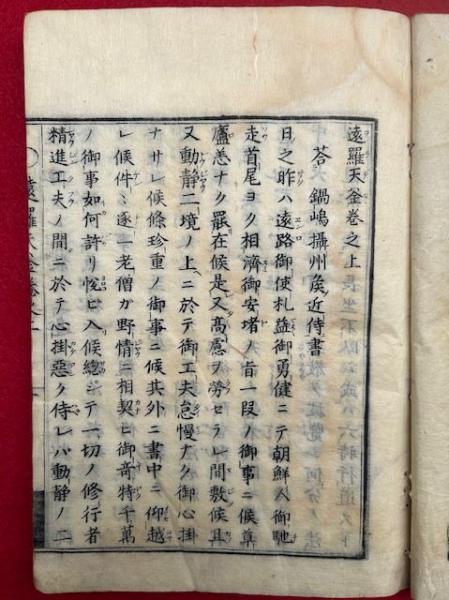 遠羅天釜卷之上
答鍋嶋攝州矦近侍書
日之昨ハ遠路御使札益御勇健ニテ朝鮮人御馳
走首尾ヨク相濟御安堵ノ旨一段ノ御事ニ候草
廬恙ナク罷在候是又高慮ヲ勞セラレ間敷候且
又動靜二境ノ上ニ於テ御工夫怠慢ナク御心掛
ナサレ候條珍重ノ御事ニ候其外ニ書中ニ仰越
レ候件ミ逐一老僧カ野情ニ相契ヒ御奇特千萬
ノ御事如何許リ悅ヒ入候總シテ一切ノ修行者
精進工夫ノ間ニ於テ心掛惡ク侍レハ動靜ノ二
遠羅天釜卷之上